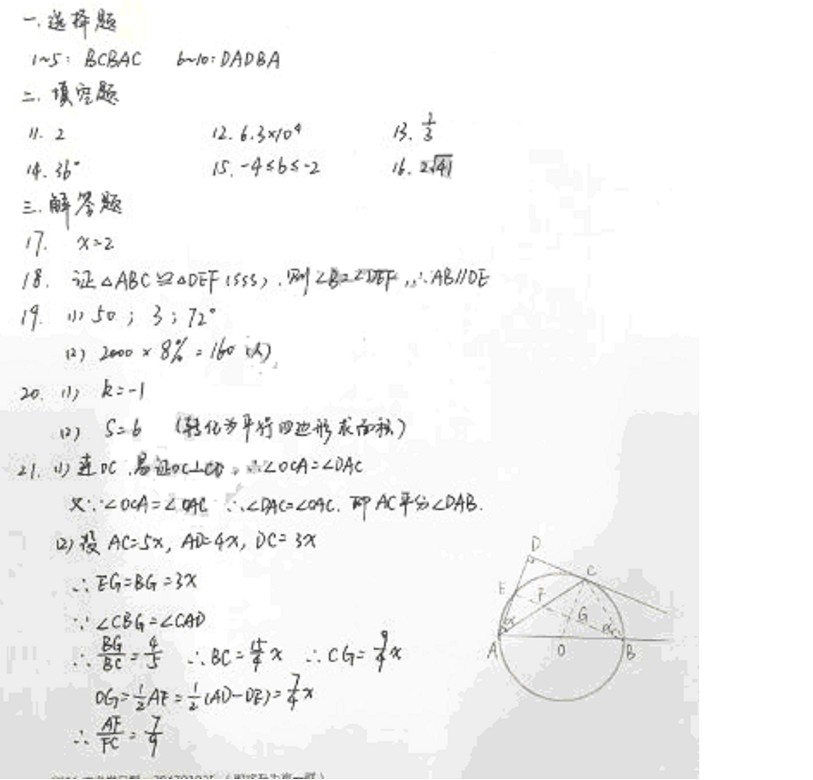 一.选择题
1~5: BCBAC 6~10: DADBA
二.填空题
11. 2 12. 6.3×10⁴ 13. 2/3
14. 36° 15. -4≤b≤-2 16. 2√41
三.解答题
17. x=2
18. 证△ABC≌△DEF(SSS), 则∠B=∠DEF, ∴AB//DE
19. (1) 50; 3; 72°
(2) 2000×8%=160(人)
20. (1) k=-1
(2) S=6 (转化为平行四边形求面积)
21. (1) 连OC, 易证OC⊥CD, ∴∠OCA=∠DAC
又∵∠OCA=∠OAC ∴∠DAC=∠OAC. 即AC平分∠DAB.
(2) 设AC=5x, AD=4x, DC=3x
∴EG=BG=3x
∵∠CBG=∠CAD
∴BG/BC=4/5 ∴BC=15/4x ∴CG=9/4x
OG=1/2AE=1/2(AD-DE)=7/4x
∴AF/FC=7/9
D
C
E F
G
α α
A O B